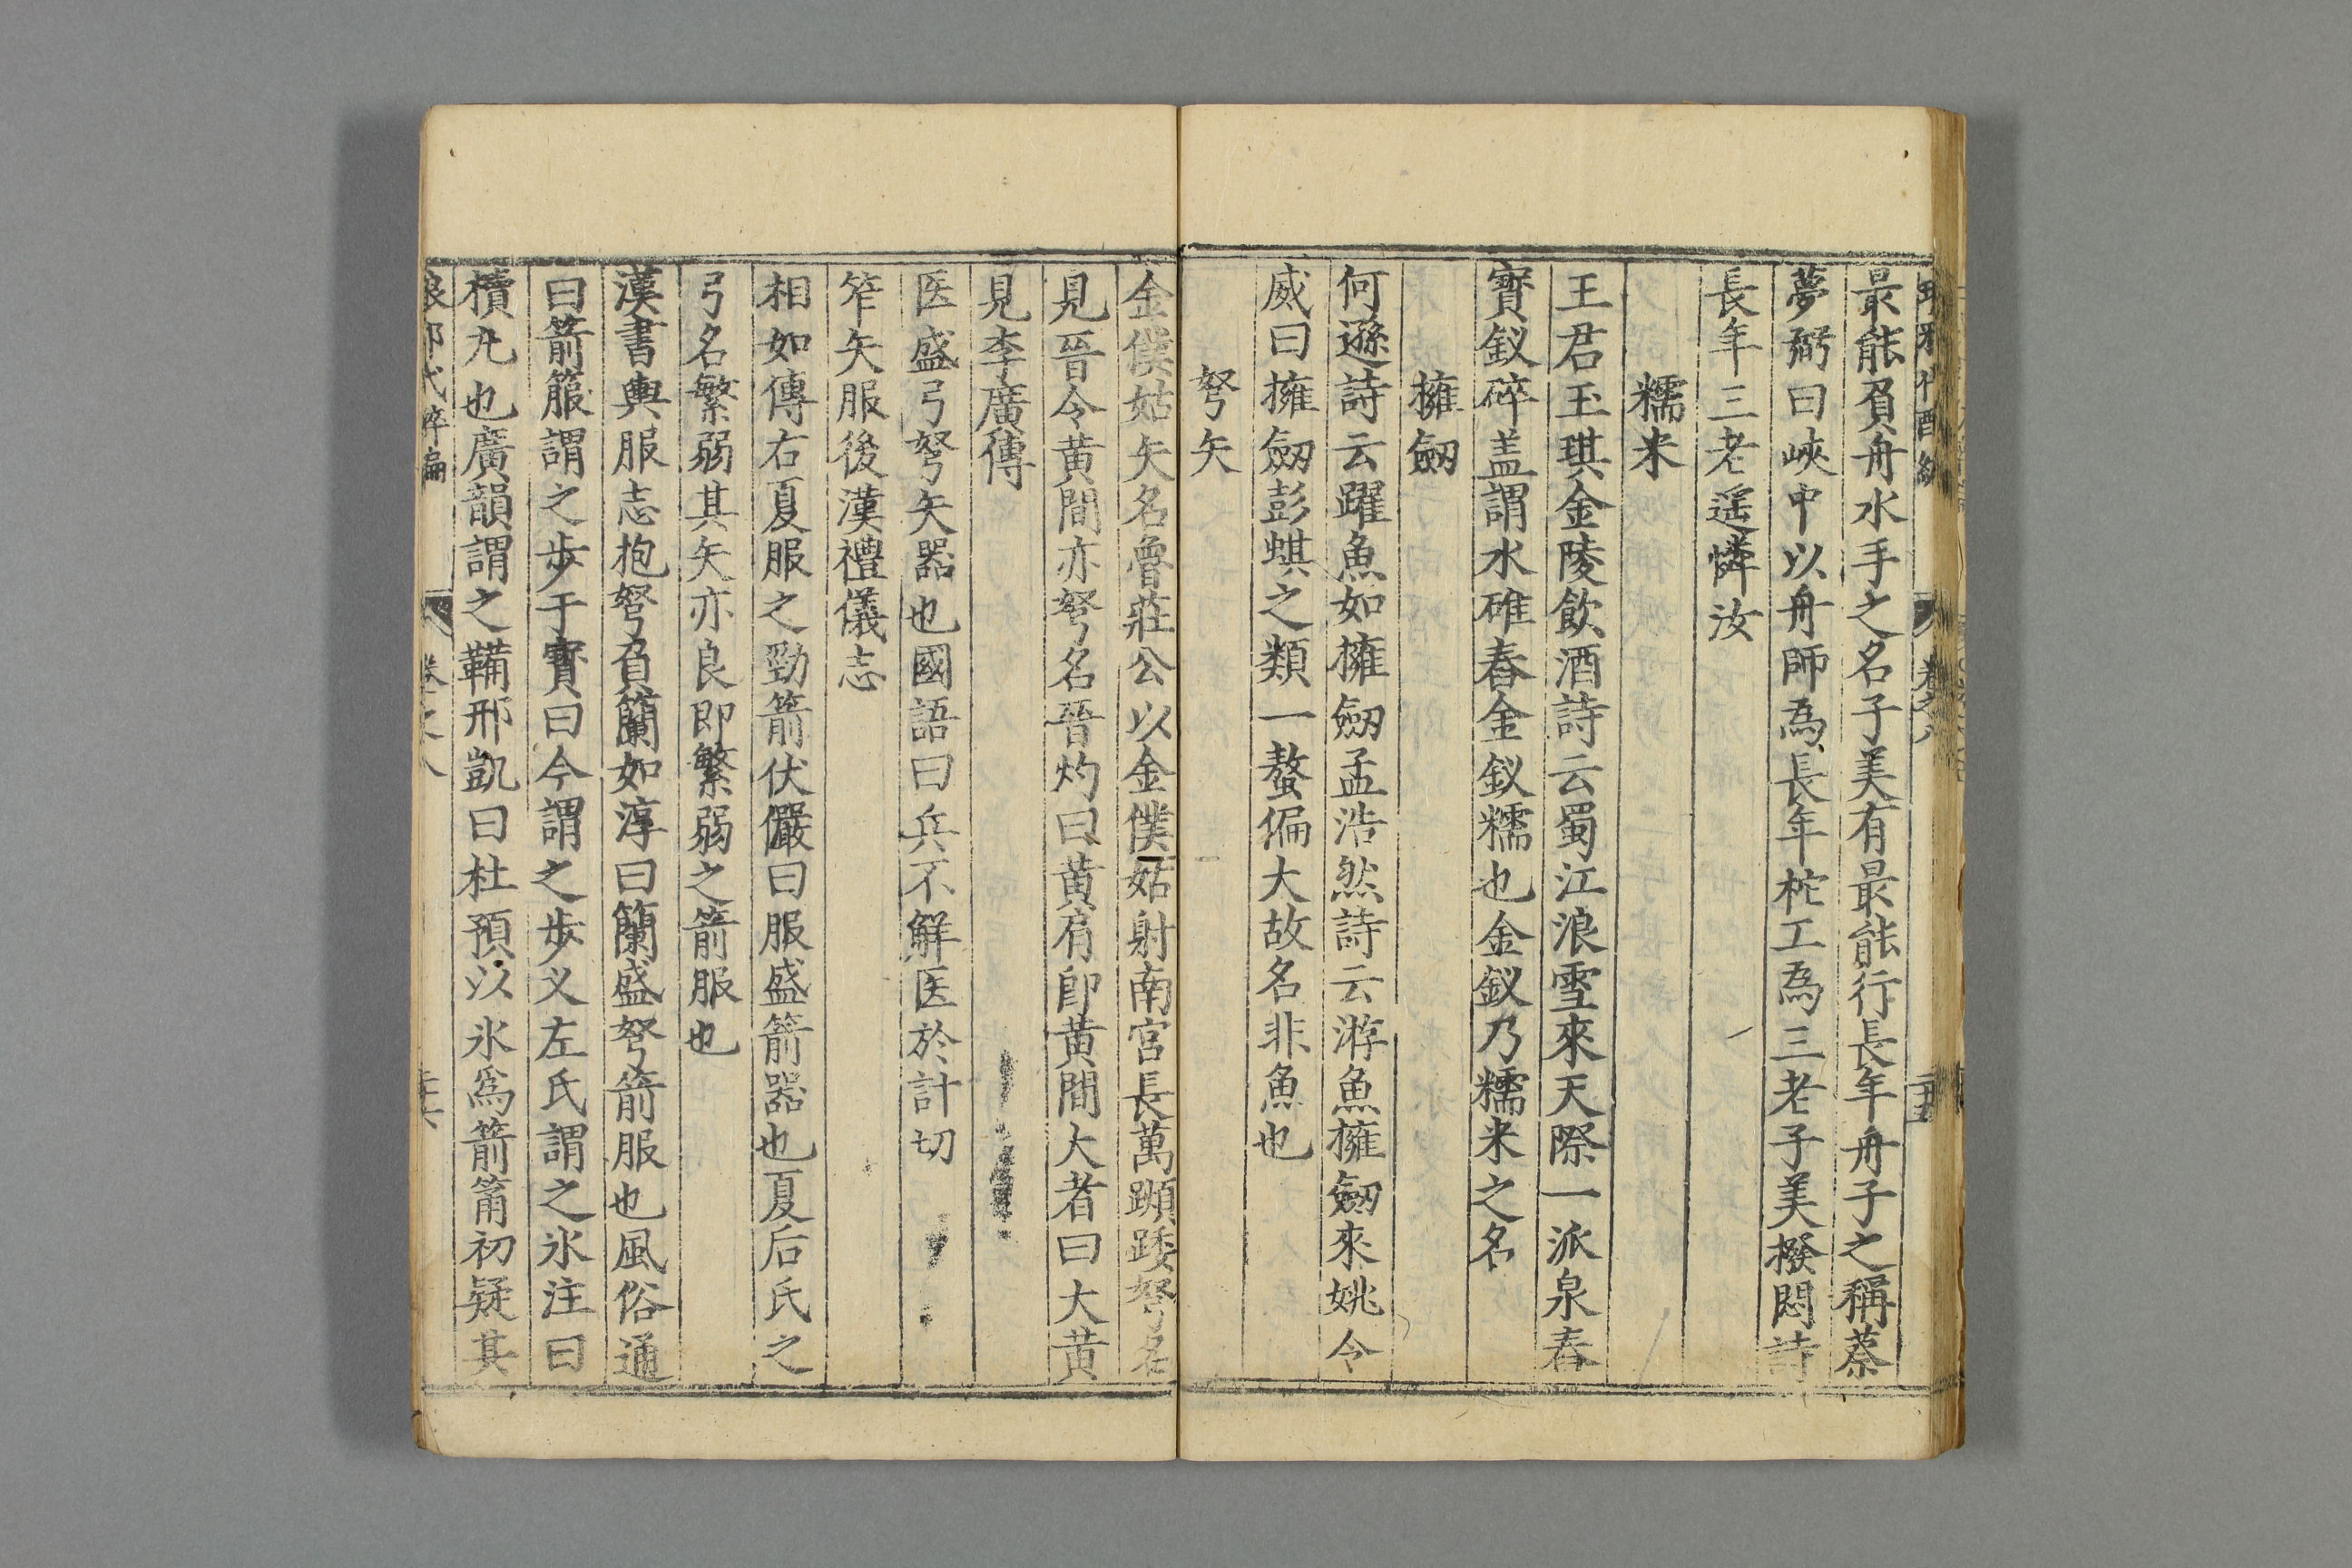 最能負舟水手之名子美有最能行長年舟子之稱蔡
夢弼曰峽中以舟師為長年柁工為三老子美撥悶詩
長年三老遥憐汝
糯米
王君玉琪金陵飲酒詩云蜀江浪雪來天際一派泉舂
寳釵碎盖謂水碓舂金釵糯也金釵乃糯米之名
擁劒
何遜詩云躍魚如擁劒孟浩然詩云游魚擁劒來姚令
威曰擁劒彭蜞之類一螯偏大故名非魚也
弩矢
金僕姑矢名魯莊公以金僕姑射南宮長萬踬踒弩名
見晉令黄間亦弩名晉灼曰黄肩卽黄間大者曰大黄
見李廣傳
医盛弓弩矢器也國語曰兵不觧医於計切
笮矢服後漢禮儀志
相如傳右夏服之勁箭伏儼曰服盛箭器也夏后氏之
弓名繁弱其矢亦良即繁弱之箭服也
漢書輿服志抱弩負籣如淳曰籣盛弩箭服也風俗通
曰箭箙謂之步于寳曰今謂之步义左氏謂之氷注曰
櫝丸也廣韻謂之鞴邢凱曰杜預以氷爲箭筩初疑其
琅邪代醉編 卷之八